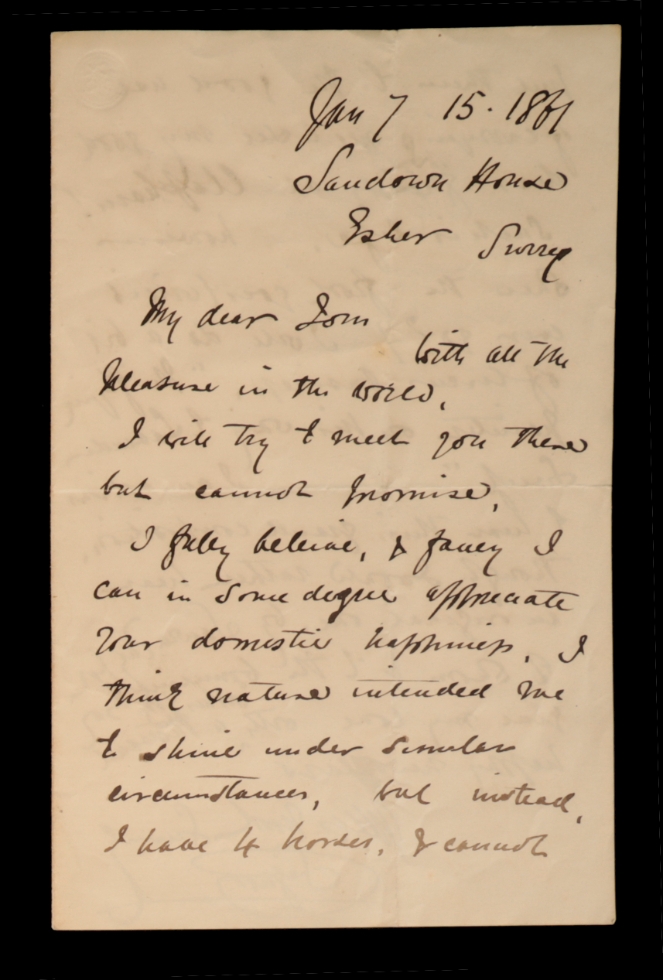 Jany 15. 1861
Sandown House
Esher Surrey
My dear Tom
With all the
pleasure in the world,
I will try to meet you there
but cannot promise,
I fully believe, & fancy I
can in some degree appreciate
your domestic happiness, I
think nature intended me
to shine under similar
circumstances, but instead,
I have 4 horses, & cannot